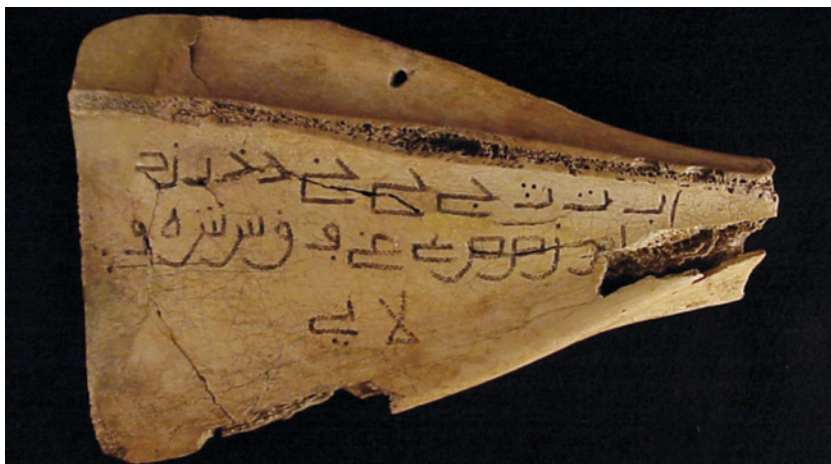 ا ب ت ث ج ح خ د ذ ر ز
ل م ن ص ض ع غ ف ق س ش ه و
لا ي